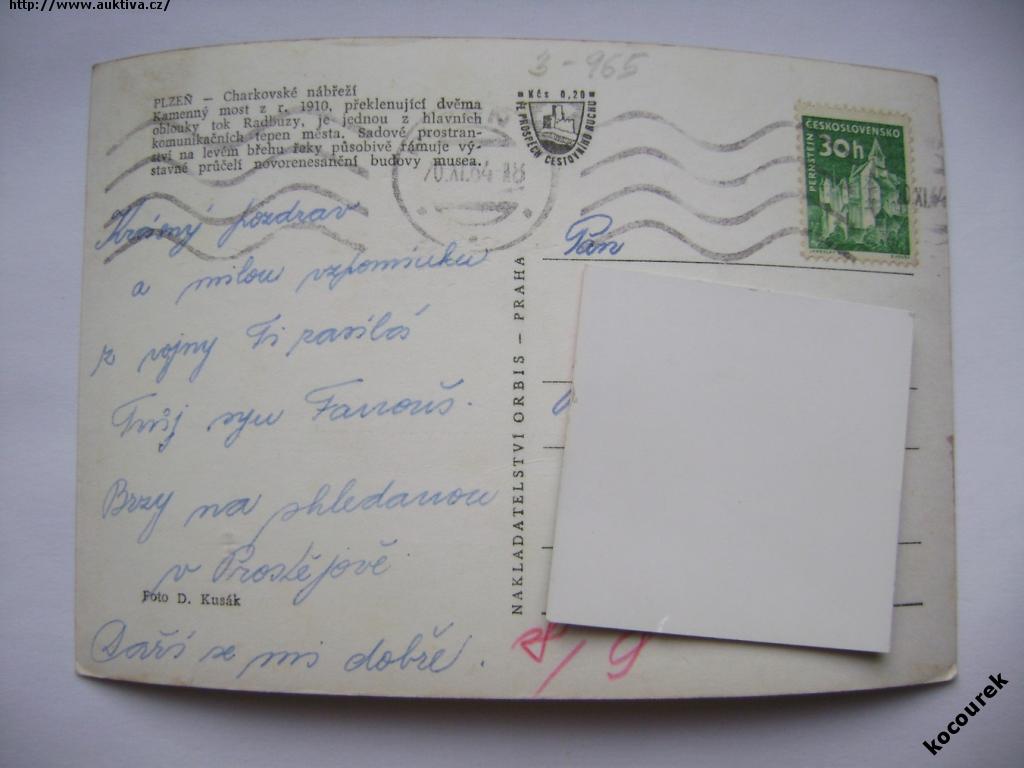 http://www.auktiva.cz/
3-965
PLZEŇ — Charkovské nábřeží
Kamenný most z r. 1910, překlenující dvěma
oblouky tok Radbuzy, je jednou z hlavních
komunikačních tepen města. Sadové prostran-
ství na levém břehu řeky působivě rámuje vý-
stavné průčelí novorenesanční budovy musea.
Kčs 0,20
VE PROSPĚCH CESTOVNÍHO RUCHU
ČESKOSLOVENSKO
30h
PERNŠTEIN
XI.64-18
XI.64
Krásný pozdrav
a milou vzpomínku
z vojny Ti zasílá
Tvůj syn Fanouš.
Brzy na shledanou
v Prostějově
Daří se mi dobře.
Foto D. Kusák
NAKLADATELSTVÍ ORBIS — PRAHA
Pan
kocourek